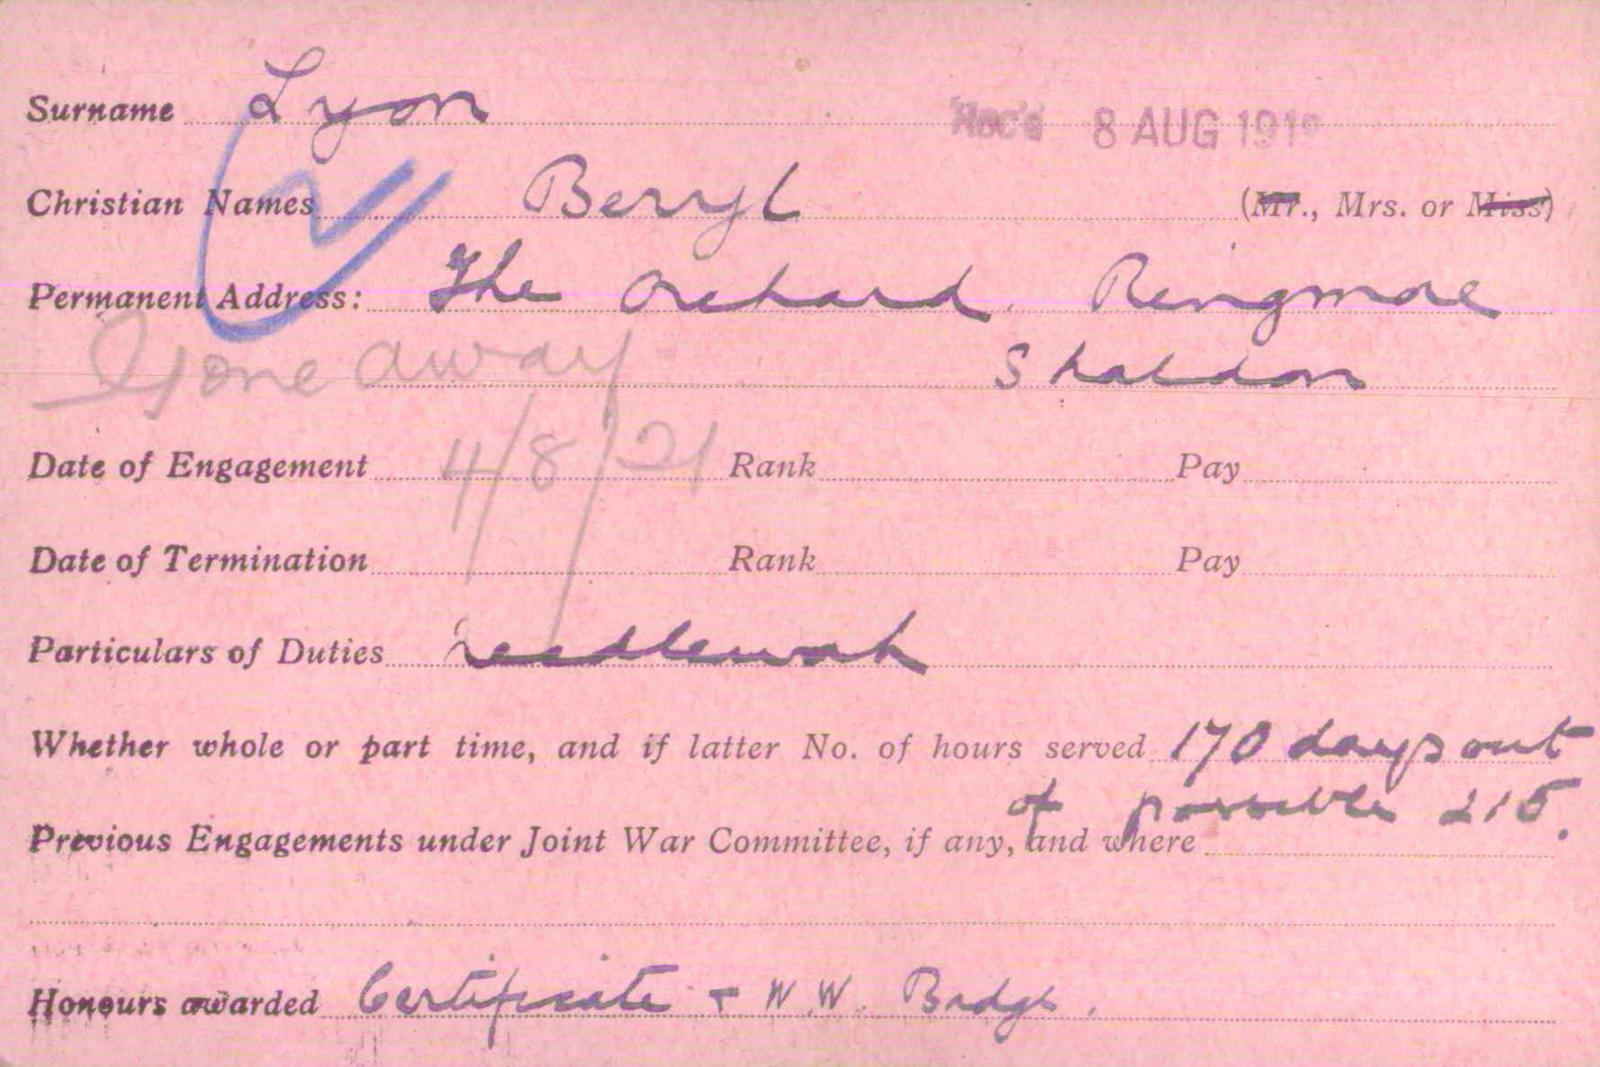 Surname Lyon Rec'd 8 AUG 1919
Christian Names Beryl (Mr., Mrs. or Miss)
Permanent Address: The Orchard. Ringmore
Gone away Shaldon
Date of Engagement 4/8/21 Rank Pay
Date of Termination Rank Pay
Particulars of Duties Needlework
Whether whole or part time, and if latter No. of hours served 170 days out
of possible 215.
Previous Engagements under Joint War Committee, if any, and where
Honours awarded Certificate + W.W. Badge.